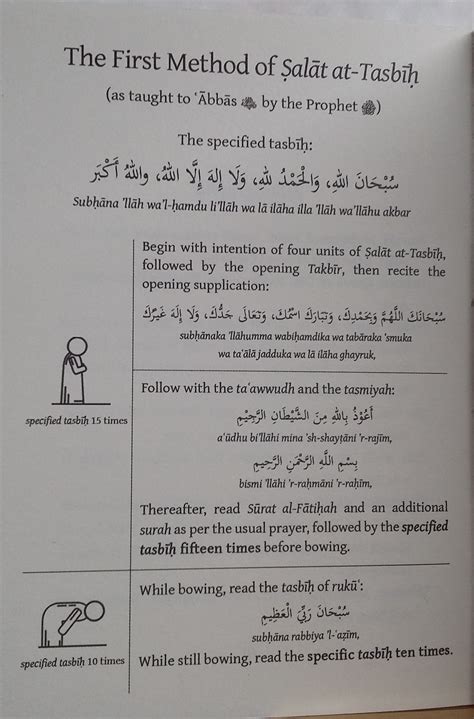 The First Method of Ṣalāt at-Tasbīḥ
(as taught to ʿĀbbās by the Prophet ﷺ)
The specified tasbīḥ:
سُبْحَانَ اللهِ، وَالْحَمْدُ لِلهِ، وَلَا إِلهَ إِلَّا اللهُ، واللهُ أَكْبَر
Subḥāna 'llāh wa'l-ḥamdu li'llāh wa lā ilāha illa 'llāh wa'llāhu akbar
Begin with intention of four units of Ṣalāt at-Tasbīḥ,
followed by the opening Takbīr, then recite the
opening supplication:
سُبْحَانَكَ اللَّهُمَّ وَبِحَمْدِكَ، وَتَبَارَكَ اسْمُكَ، وَتَعَالَى جَدُّكَ، وَلَا إِلَهَ غَيْرُكَ
subḥānaka 'llāhumma wabiḥamdika wa tabāraka 'smuka
wa ta'ālā jadduka wa lā ilāha ghayruk,
specified tasbīḥ 15 times
Follow with the ta'awwudh and the tasmiyah:
أَعُوْذُ بِاللهِ مِنَ الشَّيْطَانِ الرَّجِيْمِ
a'ūdhu bi'llāhi mina 'sh-shayṭāni 'r-rajīm,
بِسْمِ اللَّهِ الرَّحْمَنِ الرَّحِيْمِ
bismi 'llāhi 'r-raḥmāni 'r-raḥīm,
Thereafter, read Sūrat al-Fātiḥah and an additional
surah as per the usual prayer, followed by the specified
tasbīḥ fifteen times before bowing.
While bowing, read the tasbīḥ of rukūʿ:
سُبْحَانَ رَبِّيَ الْعَظِيْمِ
subḥāna rabbiya 'l-ʿaẓīm,
While still bowing, read the specific tasbīḥ ten times.
specified tasbīḥ 10 times